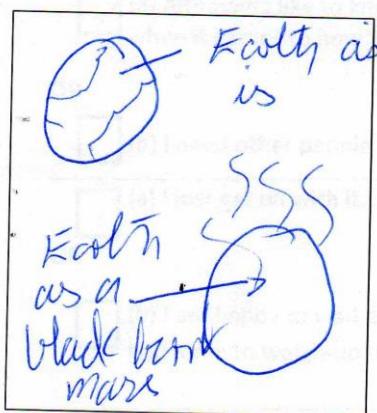 Earth as
is
Earth
as a
black burnt
mass